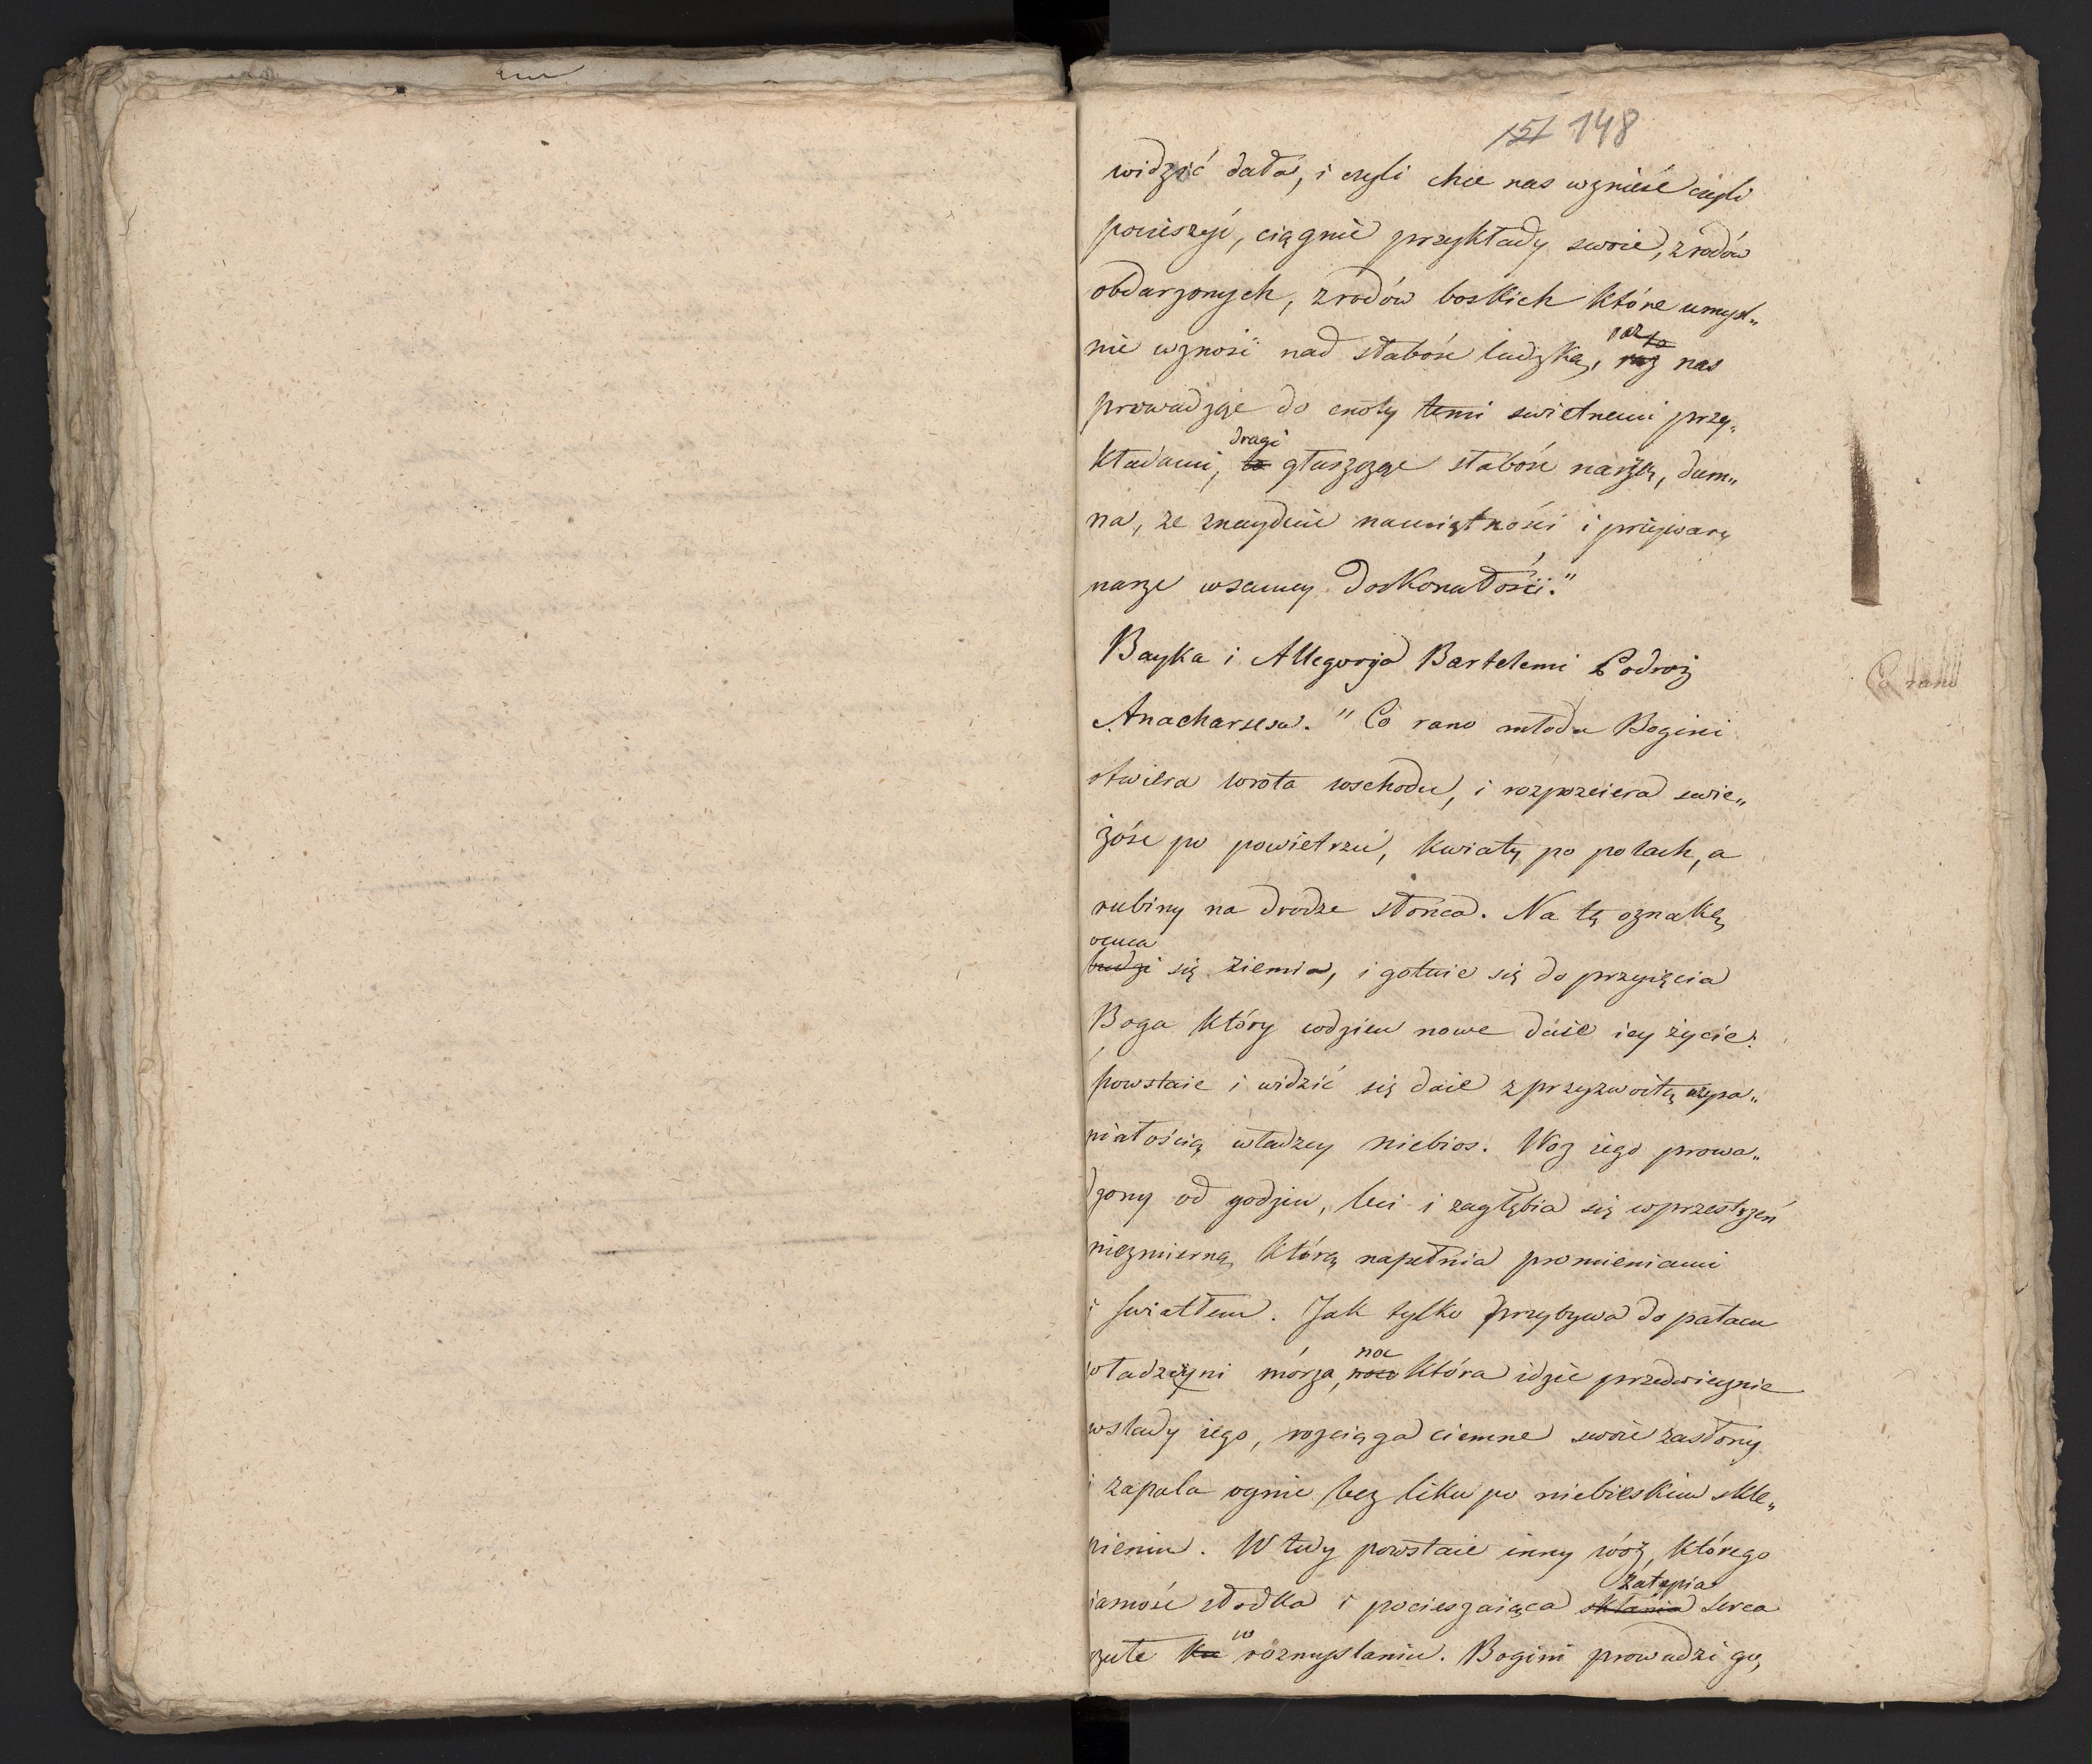 151 148
widzić dała, i czyli chce nas wznieść czyli
pocieszyć, ciągnie przykłady swoie, z rodów
obdarzonych, z rodów boskich które umysl„
nie wznosi nad słabość ludzką, raz
to raz nas
prowadząc do cnoty temi swietnemi przy„
drugi
kładami, to głaszcząc słabość naszą, dum„
na, ze znayduie namiętności i przywary
nasze wsamey doskonałości."
Bayka i Allegorya Bartelemi Podroż
Anacharsesa. "Co rano młoda Bogini
otwiera wrota wschodu, i rozpościera swie„
żość po powietrzu, kwiaty po polach, a
rubiny na drodze słońca. Na tę oznakę
ocuca
budzi się ziemia, i gotuie się do przyięcia
Boga który codzien nowe daie iey życie:
powstaie i widzić się daie z przyzwoitą wspa„
niałością władzcy niebios. Woz iego prowa„
dzony od godzin, leci i zagłębia się w przestrzeń
niezmierną, którą napełnia promieniami
i swiatłem. Jak tylko przybywa do pałacu
władzcyni morza, noc
która idzie przedwiecznie
wslady iego, rozciąga ciemne swoie zasłony
i zapala ognie bez liku po niebieskim skle„
pieniu. W tedy powstaie inny wóz, którego
iasność słodka i pocieszaiąca skłania zatapia serca
czute ku w rozmyslaniu. Bogini prowadzi go,
Co rano